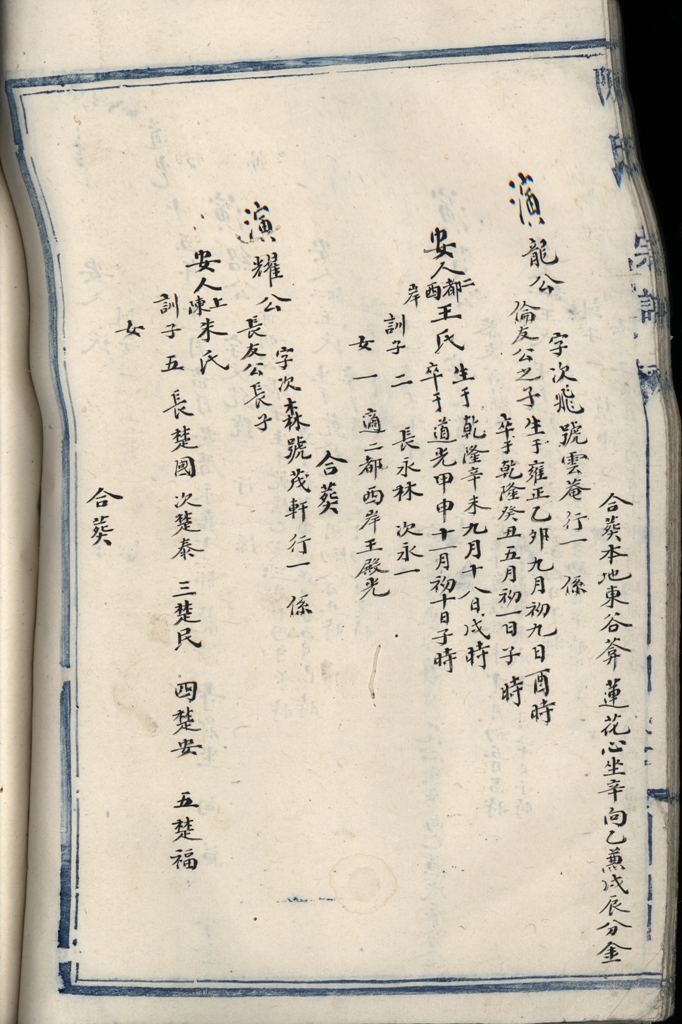 合葬本地東谷葬蓮花心坐辛向乙兼戌辰分金
演龍公
字次飛號雲菴行一係
倫友公之子
生于雍正乙卯九月初九日酉時
卒于乾隆癸丑五月初一日子時
安人二都西岸王氏
生于乾隆辛未九月十八日戌時
卒于道光甲申十一月初十日子時
訓子二 長永林 次永一
女一 適二都西岸王殿光
合葬
演耀公
字次森號茂軒行一係
長友公長子
安人上陳朱氏
訓子五 長楚國 次楚泰 三楚民 四楚安 五楚福
女
合葬